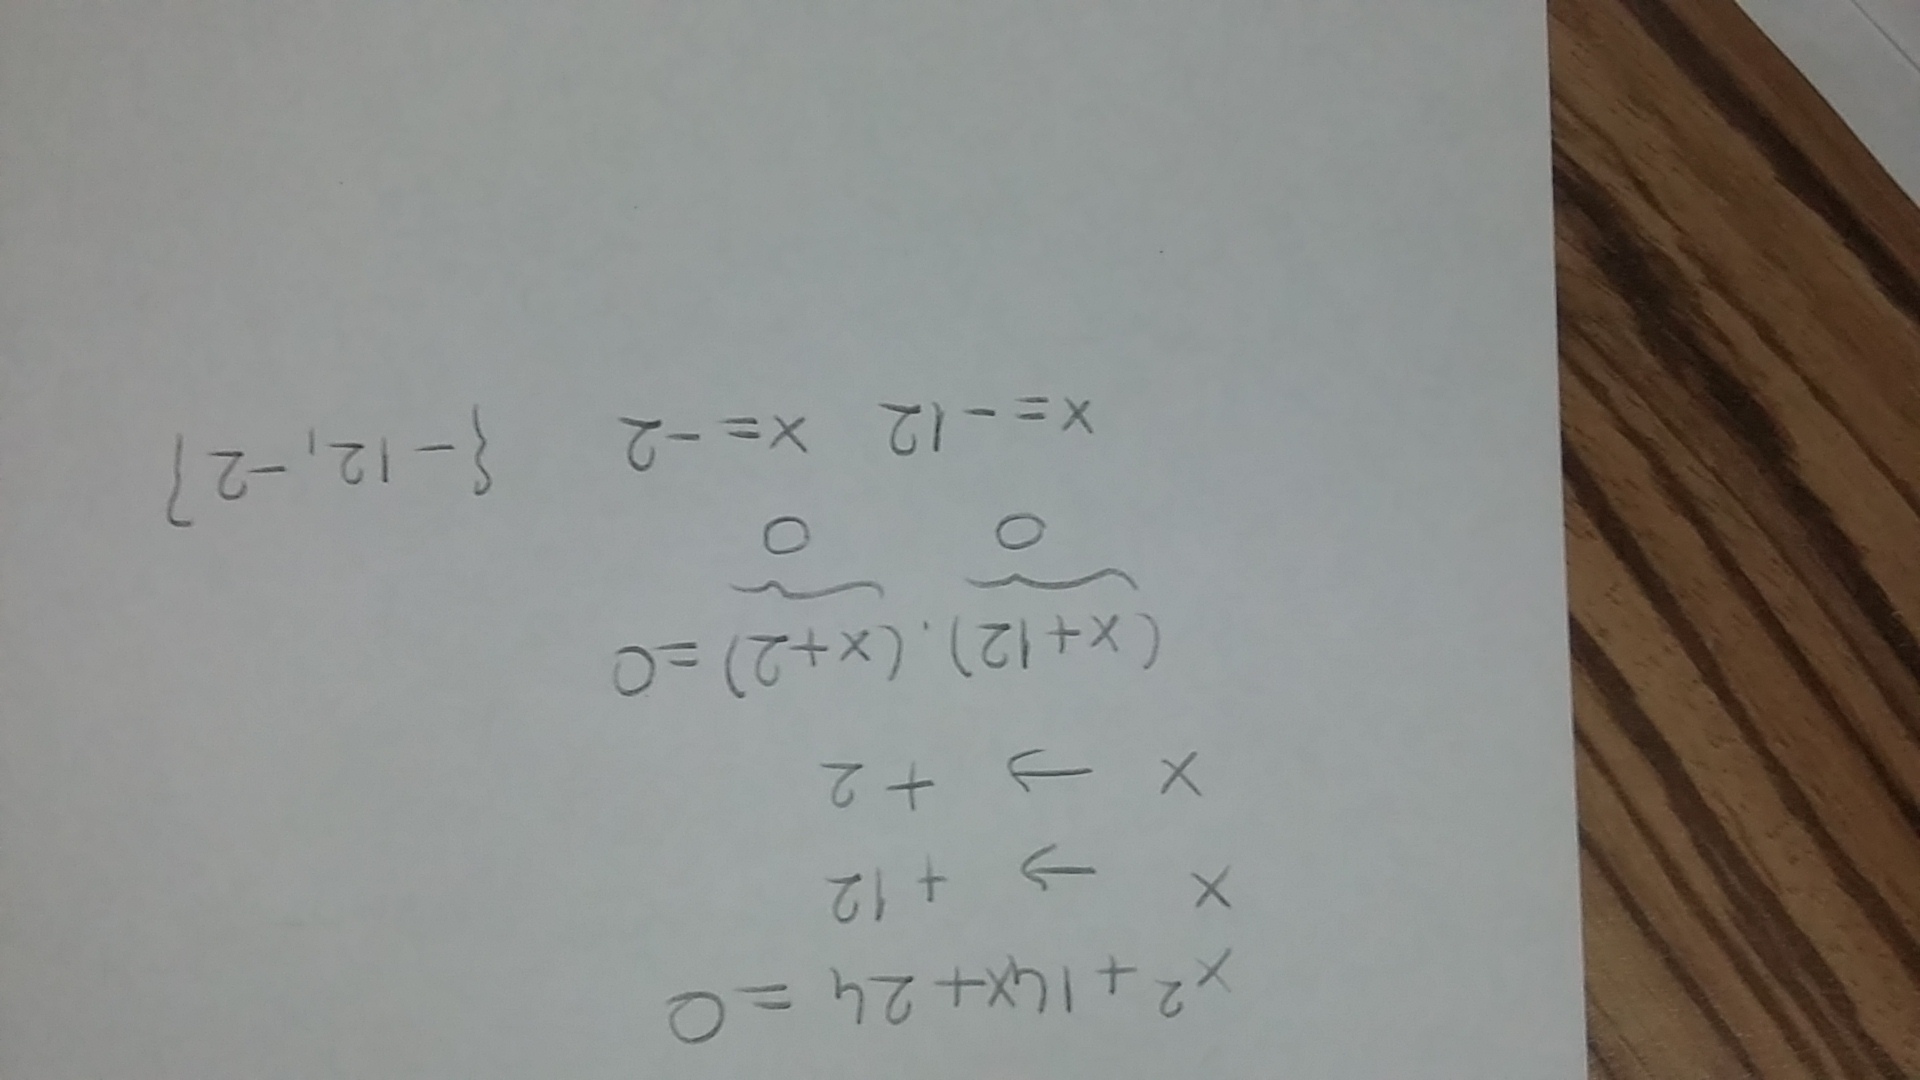 x² + 14x + 24 = 0
x → + 12
x → + 2
(x + 12) . (x + 2) = 0
0 0
x = - 12 x = - 2 {- 12, - 2}